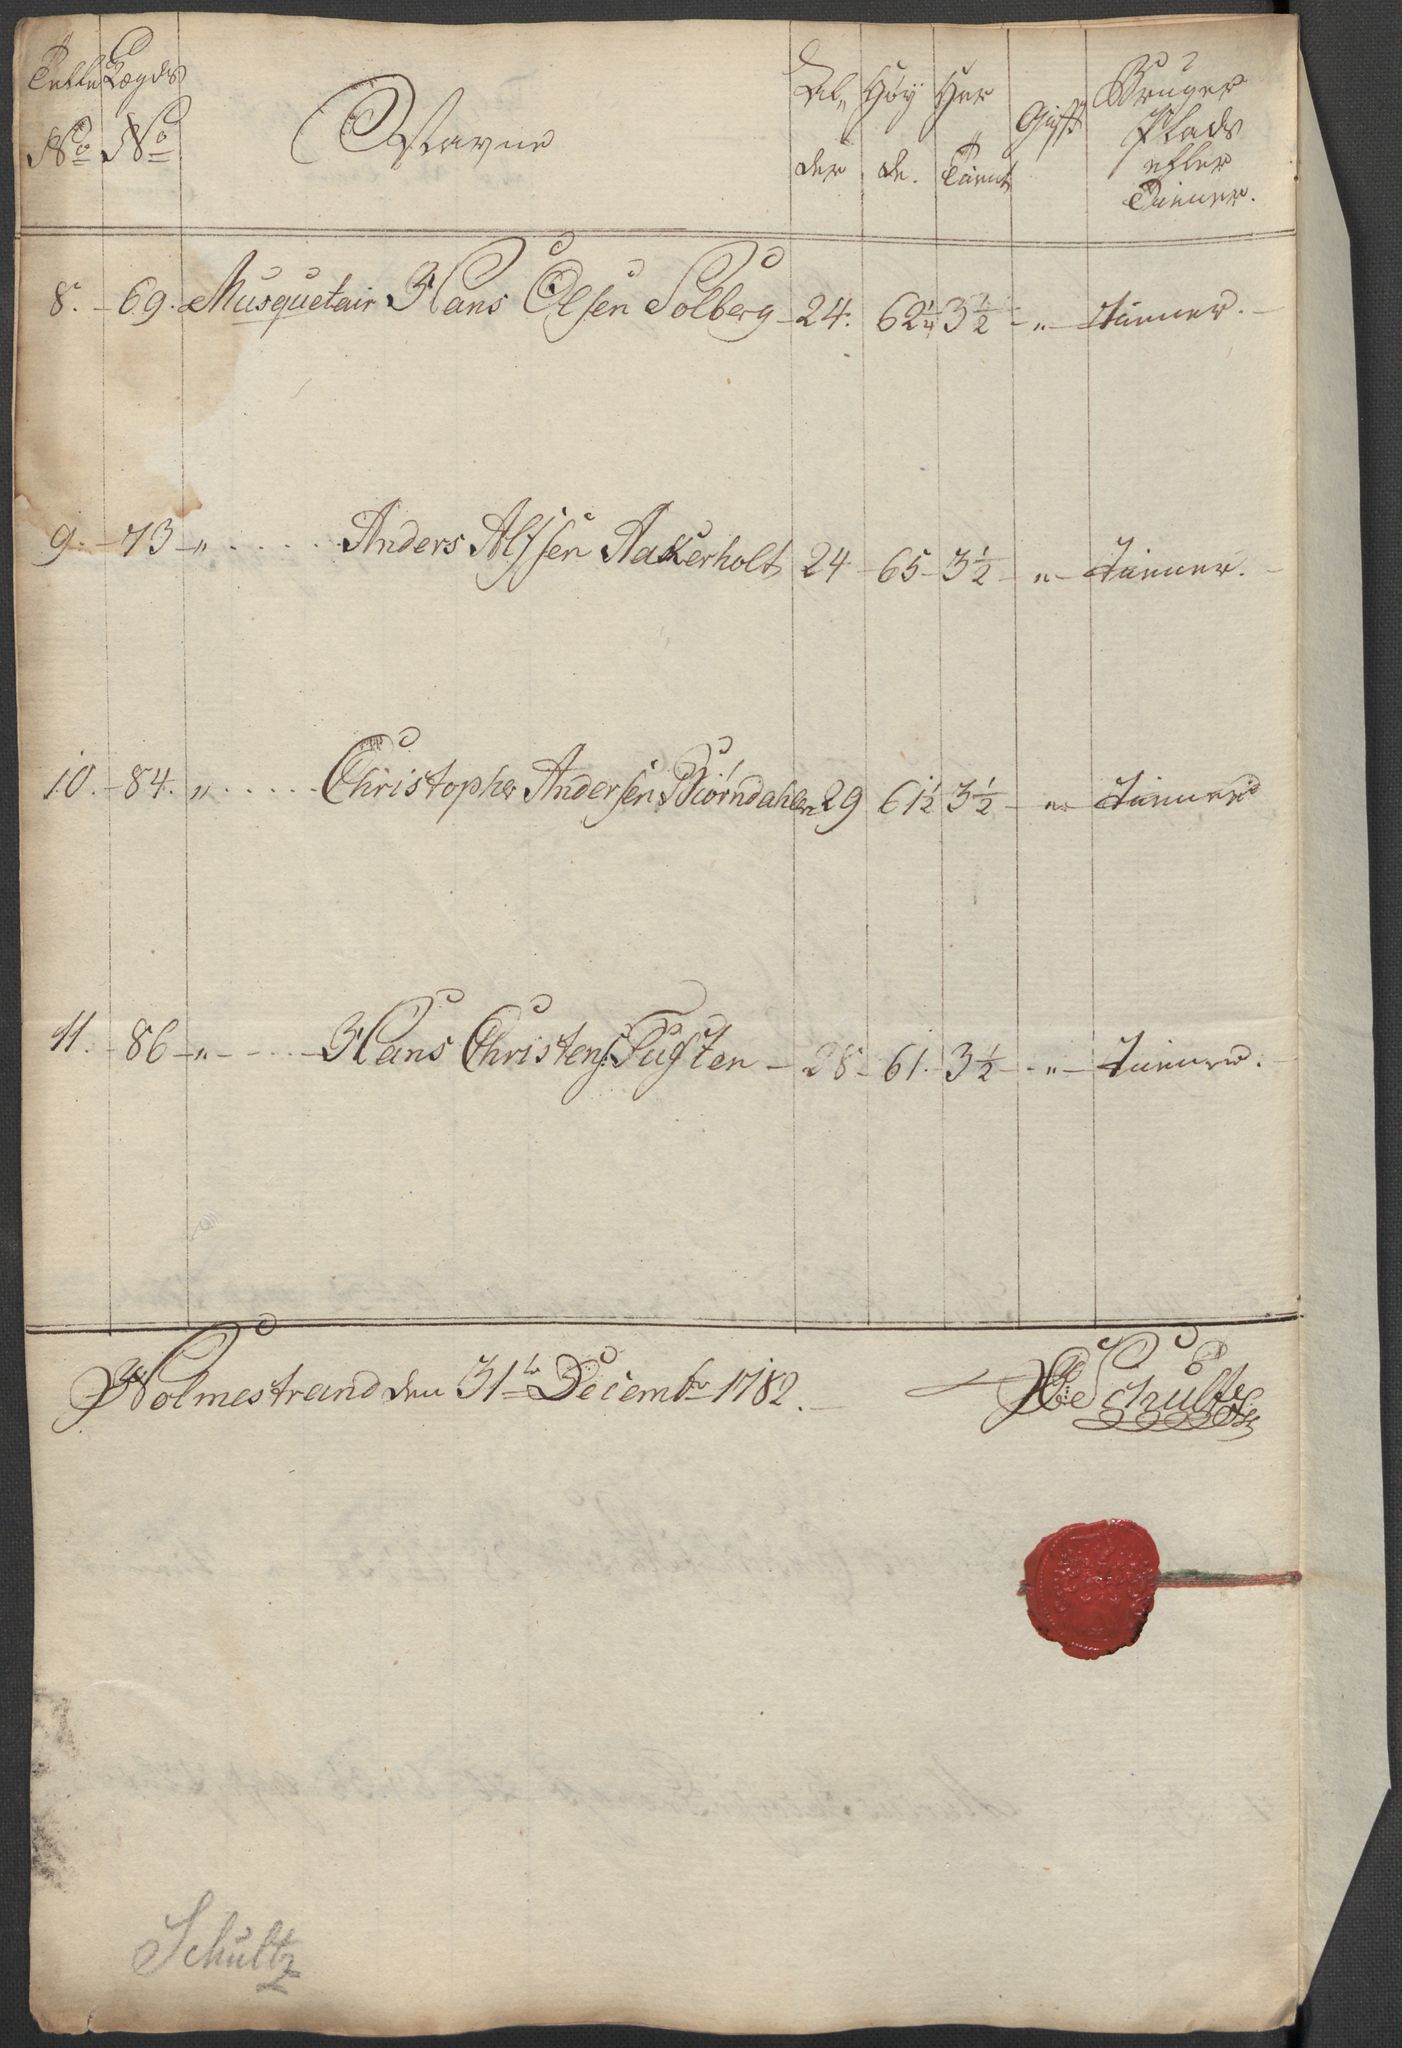 Tette Lægds Navne Al, Høy Har Gift Bruger
No No der de. Tient Plads
eller
Tiener.
8. 69. Musquetair Hans Olsen Solberg 24. 62 1/4 3 1/2 " tiener.
9. 73 " Anders Alfsen Aakerholt 24 65 3 1/2 " tiener.
10. 84. " Christopher Andersen Biørndahlen 29 61 1/2 3 1/2 " tiener
11. 86 " Hans Christens: Tufften 28 61. 3 1/2 " tiener.
Holmestrand den 31te Decembr 1782.
Schultz
Schultz